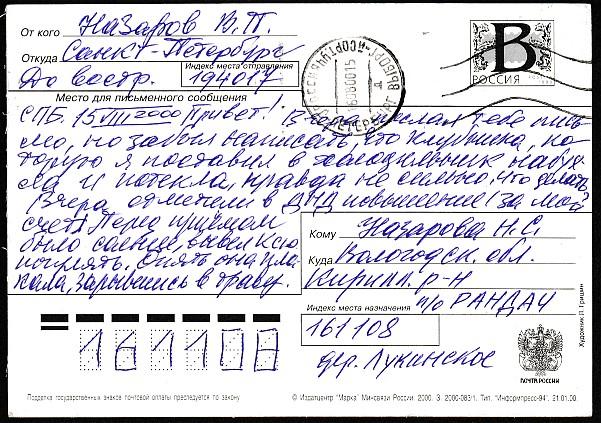 От кого Назаров В.П.
Откуда Санкт-Петербург
До востр.
Индекс места отправления
194017
В
РОССИЯ
16080015
Место для письменного сообщения
СПБ. 15 VIII 2000 Привет! Вчера послал тебе пись
мо, но забыл написать, что клубника, ко
торую я поставил в холодильник набух
ла и потекла, правда не сильно, что делать
Вчера отметили в ДНД повышение! За мой
счет. Перед приёмом
было солнце, вывел Ксю
погулять. Опять она пла
кала, зарывшись в траву.
Кому Назарова Н.С.
Куда Вологодск. обл.
Кирилл. р-н
п/о РАНДАЧ
Индекс места назначения
161108
дер. Лукинское
161108
Художник Л. Гришин
ПОЧТА РОССИИ
Подделка государственных знаков почтовой оплаты преследуется по закону
© Издатцентр "Марка" Минсвязи России. 2000. З. 2000-083/1. Тип. "Информпресс-94". 21.01.00.